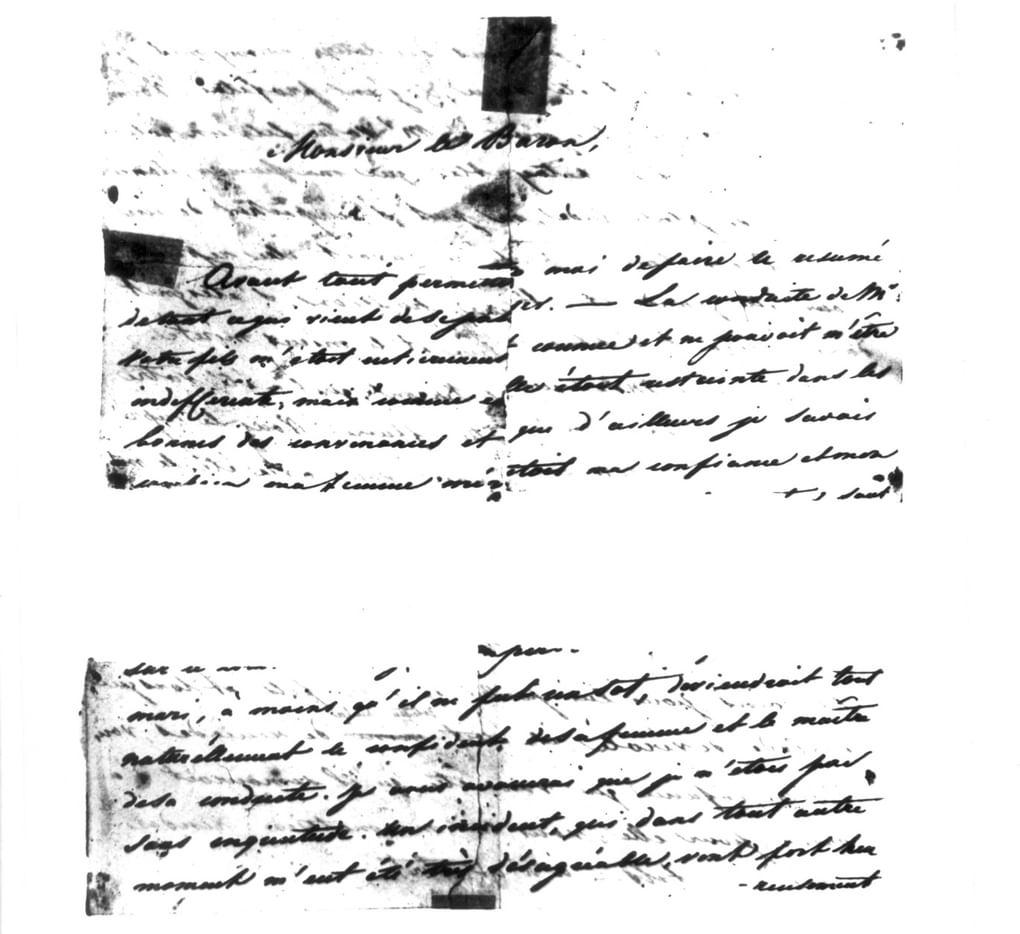 Monsieur le Baron,
Avant tout permettez moi de faire le resumé
de tout ce qui vient de se passer. — La conduite de Mr
votre fils m'étoit entierement connue et ne pouvoit m'être
indifferente, mais comme elle étoit restreinte dans les
bornes des convenances et que d'ailleurs je savais
combien ma femme méritoit ma confiance et mon
mari, à moins qu'il ne fut un sot, deviendroit tout
naturéllement le confident de sa femme et le maître
de sa conduite. Je vous avouerai que je n'étois pas
sans inquietude. Un incident, qui dans tout autre
moment m'eut été très désagréable, vint fort heu
-reusement